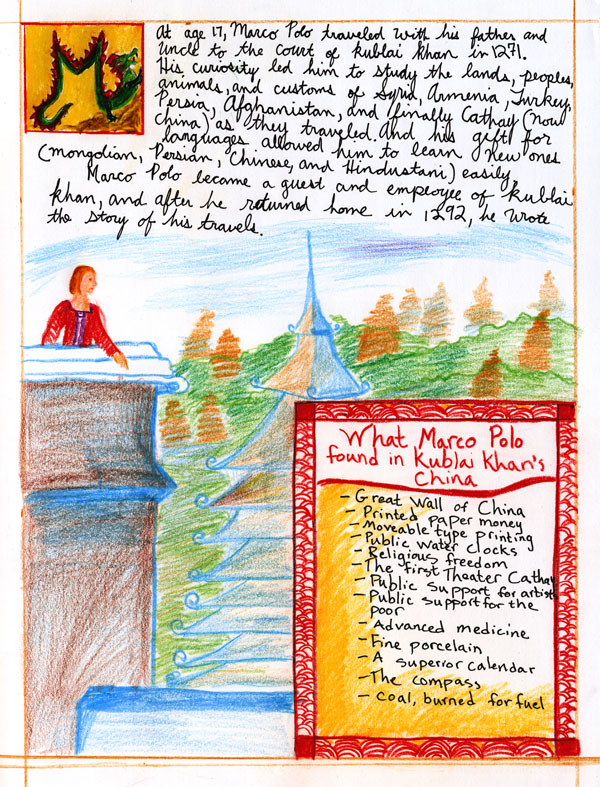 At age 17, Marco Polo traveled with his father and
Uncle to the court of Kublai Khan in 1271.
His curiosity led him to study the lands, peoples,
animals, and customs of Syria, Armenia, Turkey,
Persia, Afghanistan, and finally Cathay (now
China) as they traveled. And his gift for
languages allowed him to learn new ones
(Mongolian, Persian, Chinese, and Hindustani) easily.
Marco Polo became a guest and employee of Kublai
Khan, and after he returned home in 1292, he wrote
the story of his travels.
What Marco Polo
found in Kublai Khan's
China
- Great Wall of China
- Printed paper money
- Moveable type printing
- Public water clocks
- Religious freedom
- The first Theater Cathay
- Public support for artists
- Public support for the
poor
- Advanced medicine
- Fine porcelain
- A superior calendar
- The compass
- Coal, burned for fuel